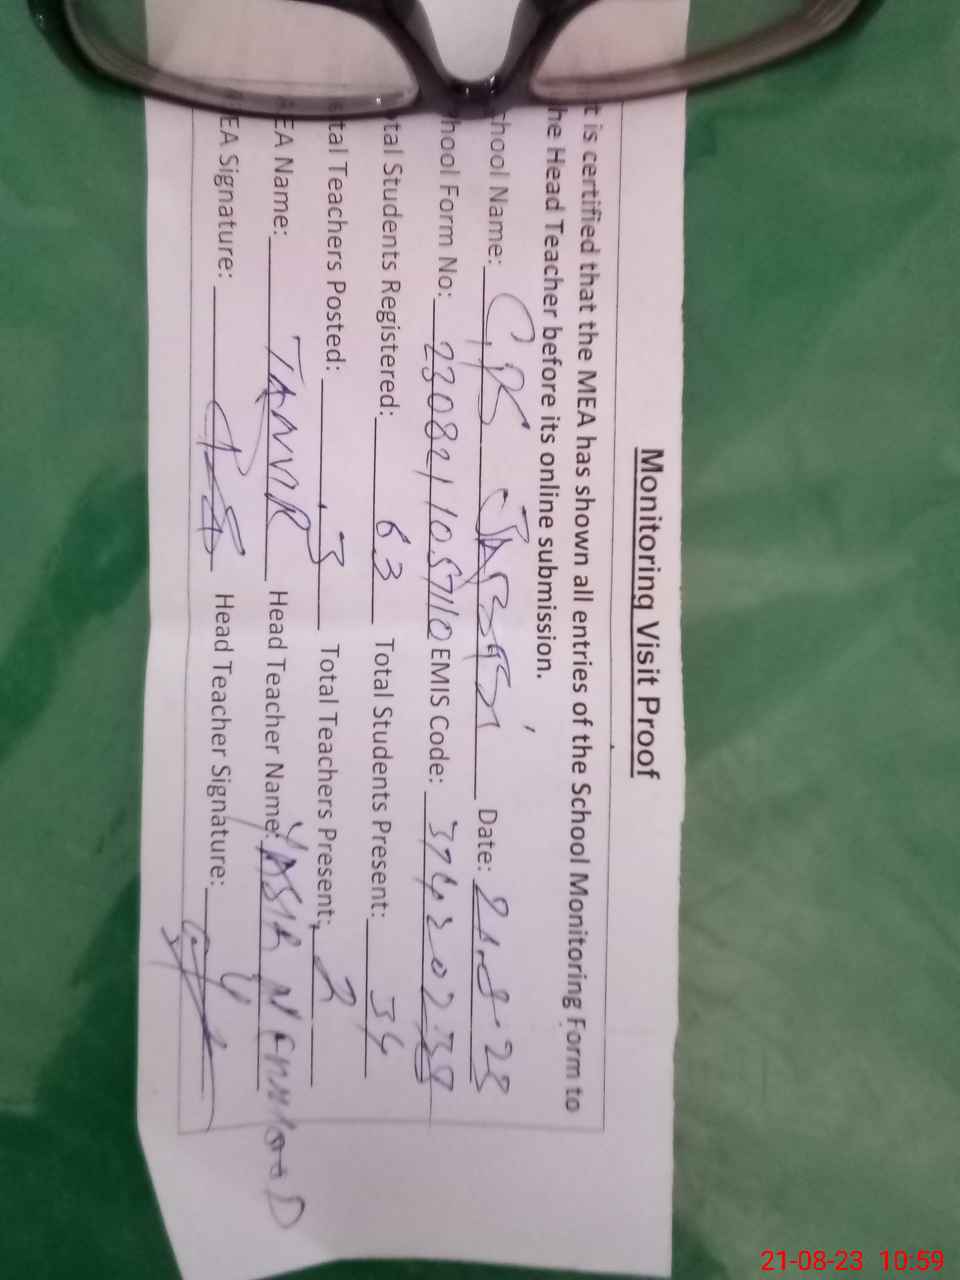 Monitoring Visit Proof
t is certified that the MEA has shown all entries of the School Monitoring Form to
he Head Teacher before its online submission.
chool Name: Date: 21.8.23
hool Form No: 23082110 EMIS Code:
tal Students Registered: 63 Total Students Present: 34
tal Teachers Posted: 3 Total Teachers Present: 2
EA Name: TANVIR Head Teacher Name: YASIR MEHMOOD
EA Signature: Head Teacher Signature:
21-08-23 10:59